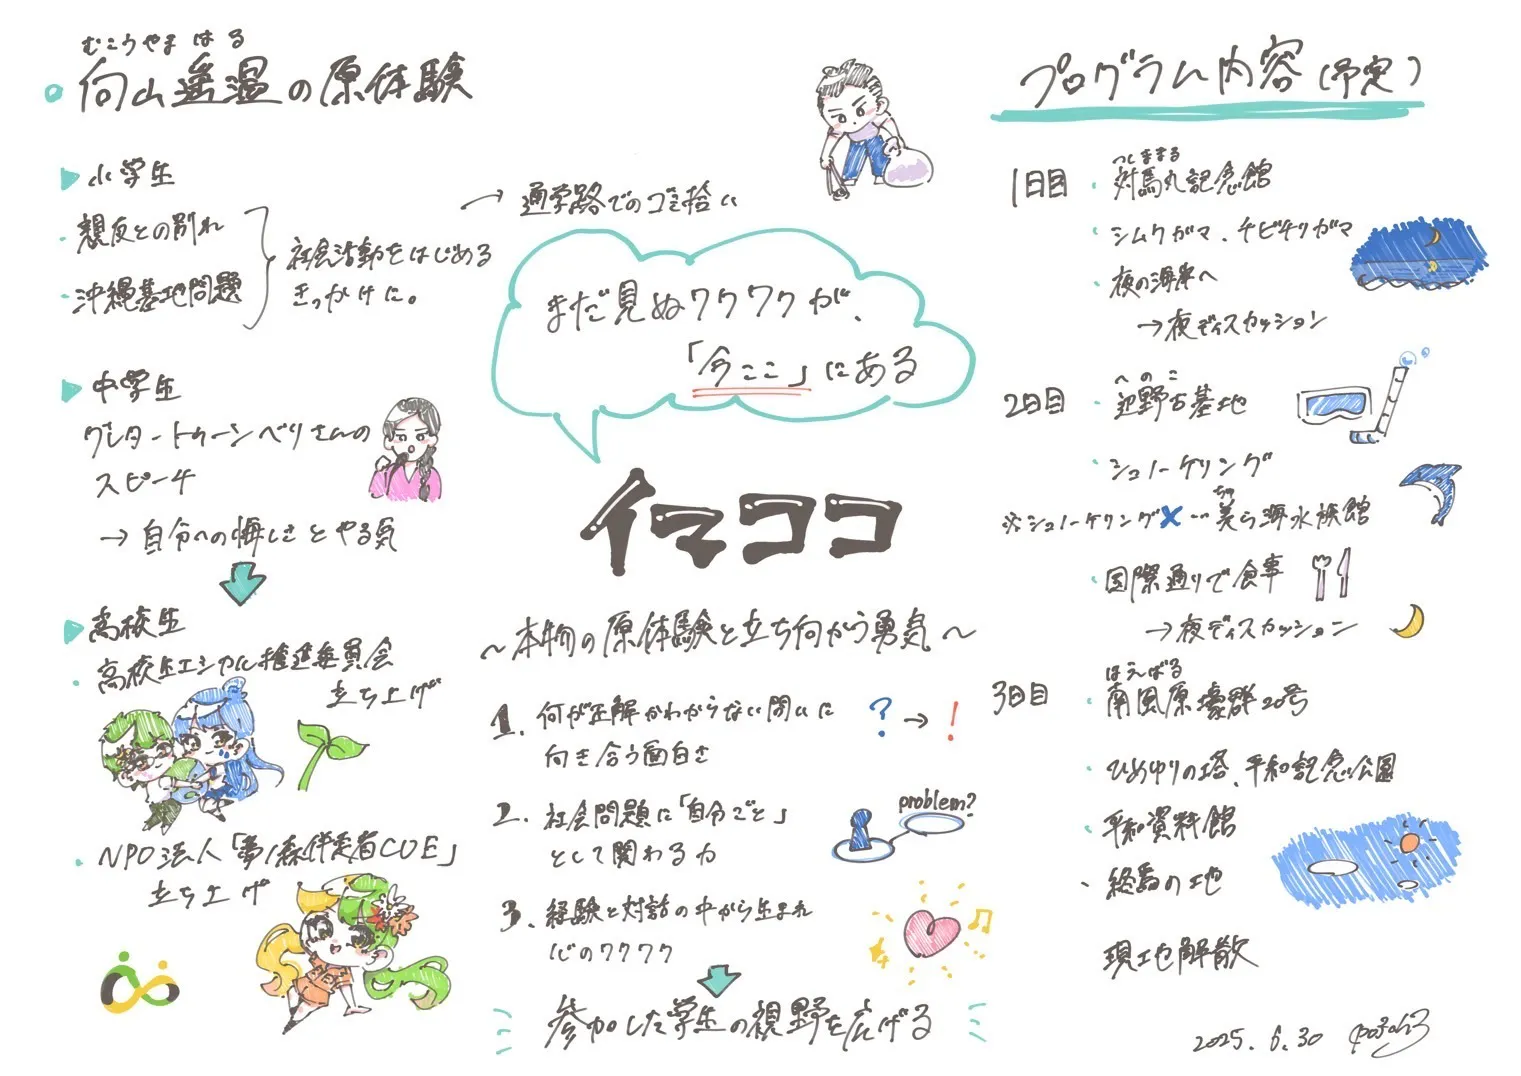 むこうやま はる
向山遥温の原体験
小学生
・親友との別れ
・沖縄基地問題
社会活動をはじめる
きっかけに。
→通学路でのゴミ拾い
中学生
グレタ・トゥーンベリさんの
スピーチ
→自分への悔しさとやる気
高校生
・高校生エシカル推進委員会
立ち上げ
・NPO法人「夢ノ森伴走者CUE」
立ち上げ
まだ見ぬワクワクが、
「今ここ」にある
イマココ
〜本物の原体験と立ち向かう勇気〜
1. 何が正解かわからない問いに
向き合う面白さ
? → !
2. 社会問題に「自分ごと」
として関わる力
problem?
3. 経験と対話の中から生まれ
心のワクワク
参加した学生の視野を広げる
プログラム内容(予定)
1日目
つしままる
・対馬丸記念館
・シムクガマ、チビチリガマ
・夜の海岸へ
→夜ディスカッション
2日目
へのこ
・辺野古基地
・シュノーケリング
ちゅ
※シュノーケリング×…美ら海水族館
・国際通りで食事
→夜ディスカッション
3日目
はえばる
・南風原壕群20号
・ひめゆりの塔、平和記念公園
・平和資料館
・終焉の地
現地解散
2025.6.30